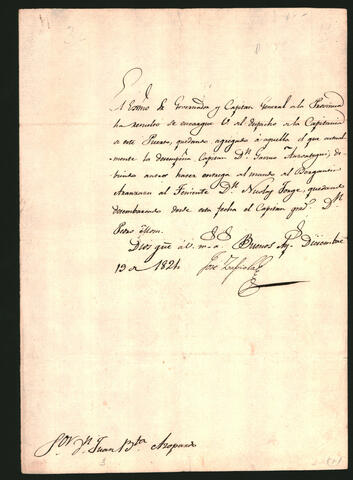 El Exmo de Governador y Capitan General de la Provincia
ha resuelto se encargue V. del despacho de la Capitania
de este Puerto, quedando agregado á aquella el que actual-
mente la desempeña Capitan Dn
antes hacer entrega del mando del Bergantin
Aranzazu al Teniente Dn Nicolas Jorge, quedando
desembarcado desde esta fecha el Capitan grado Dn
Dios gue á V. m. a. Buenos Ays Diciembre
19 de 1821
José Zapiola
Sor Dn Juan Bta Azopardo
3